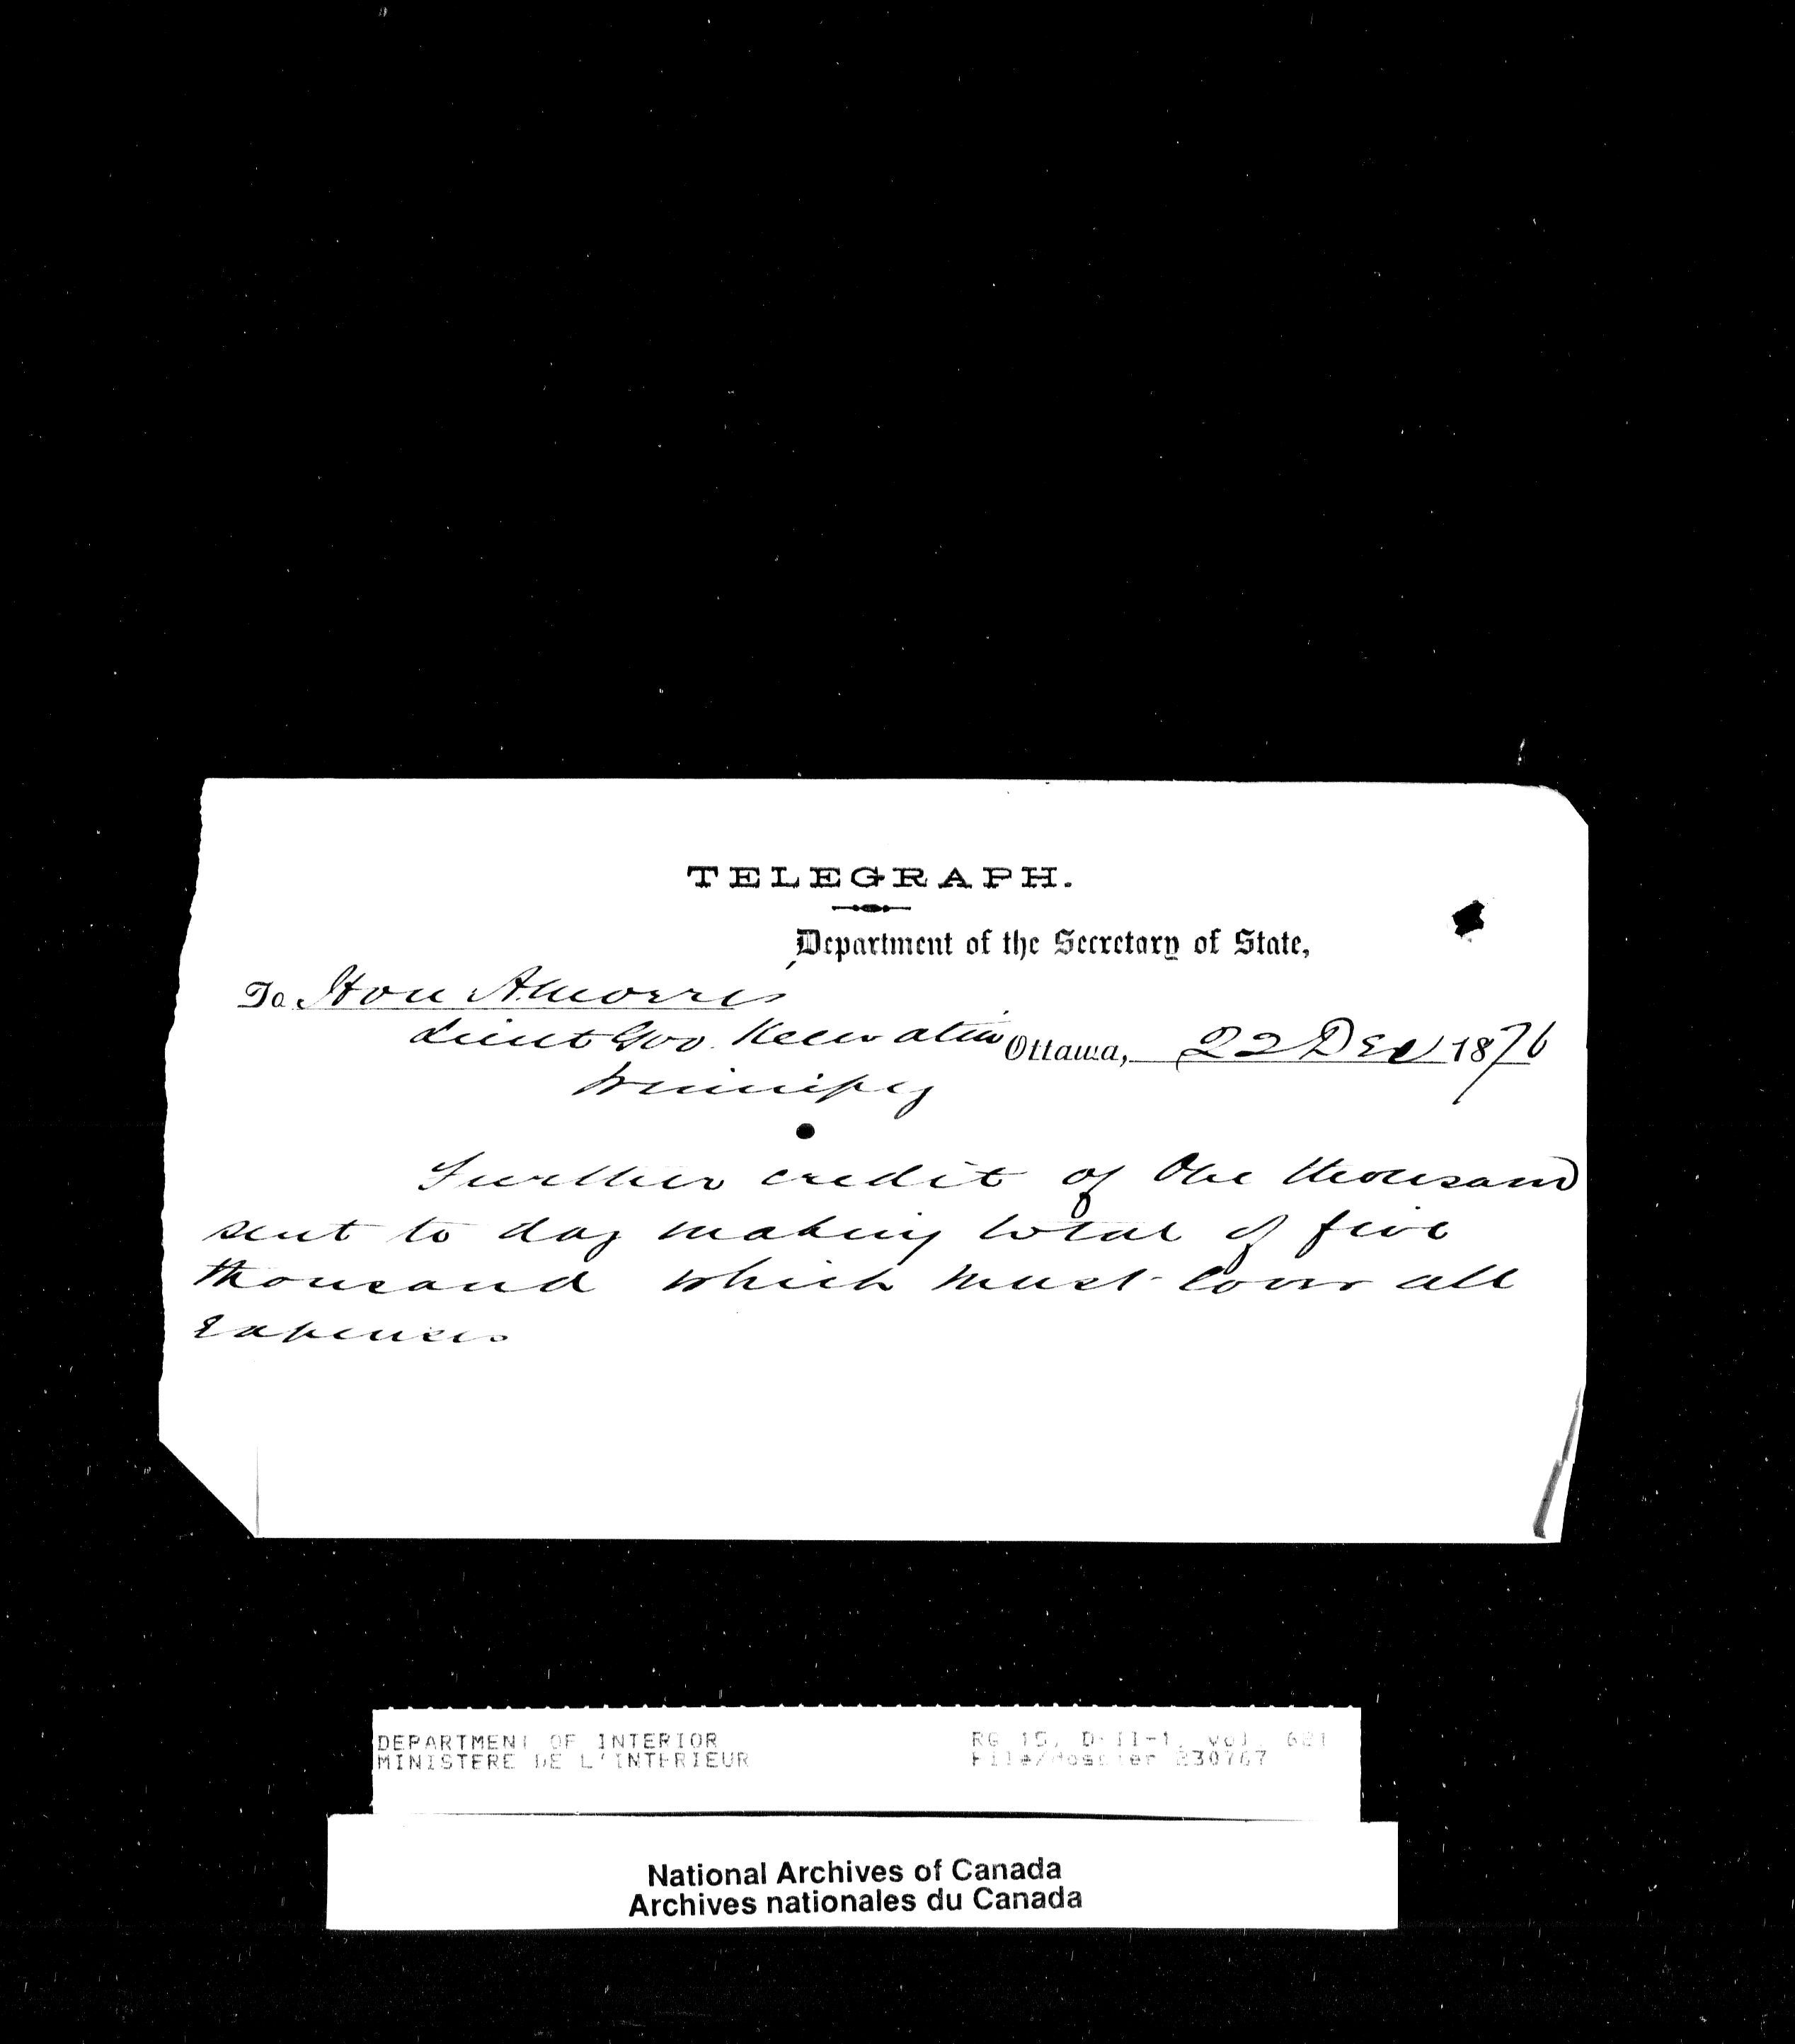 TELEGRAPH.
Department of the Secretary of State,
To Hon A. Morris
Lieut Gov. Keewatin Ottawa, 22 Dec 1876
Winnipeg
Further credit of One thousand
sent to day making total of five
thousand which must cover all
expenses
DEPARTMENT OF INTERIOR RG 15, D-II-1, vol. 621
MINISTERE DE L'INTERIEUR File/dossier 230767
National Archives of Canada
Archives nationales du Canada